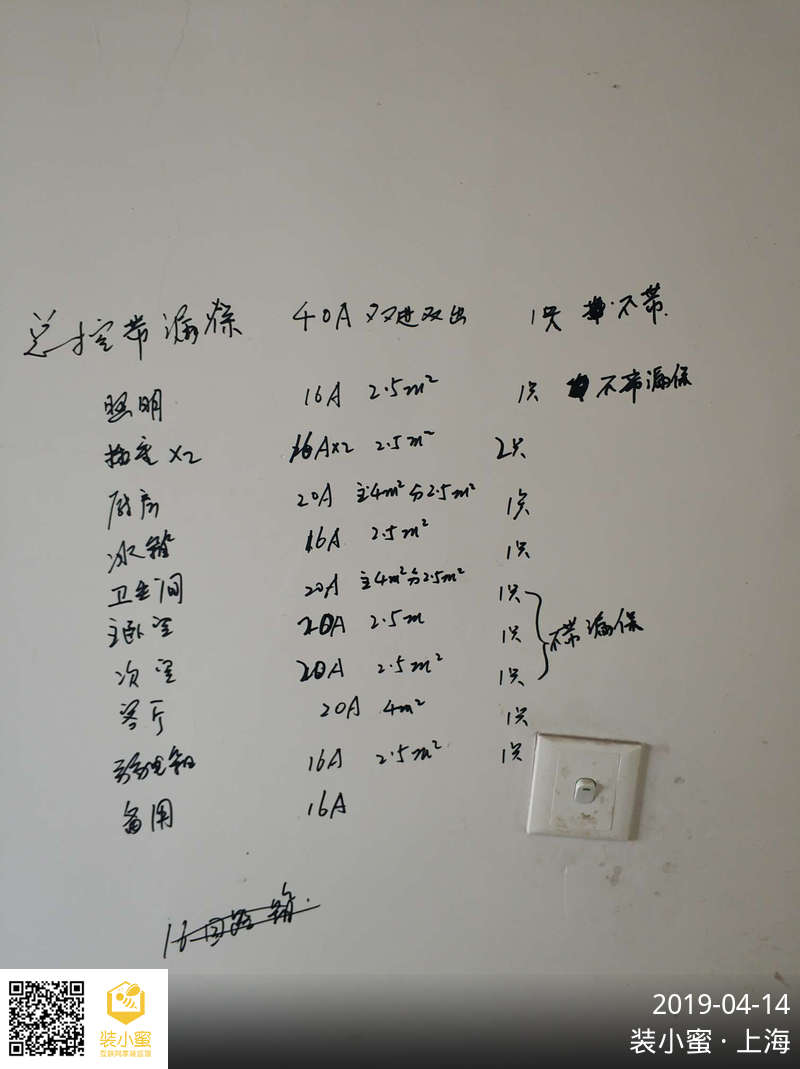 总控带漏保 40A 双进双出 1只 不带.
照明 16A 2.5m² 1只 不带漏保
插座X2 16AX2 2.5m² 2只
厨房 20A 主4m²分2.5m² 1只
冰箱 16A 2.5m² 1只
卫生间 20A 主4m²分2.5m² 1只
主卧室 20A 2.5m 1只 不带漏保
次室 20A 2.5m² 1只
客厅 20A 4m² 1只
弱电箱 16A 2.5m² 1只
备用 16A
16回路箱.
装小蜜
2019-04-14
装小蜜·上海